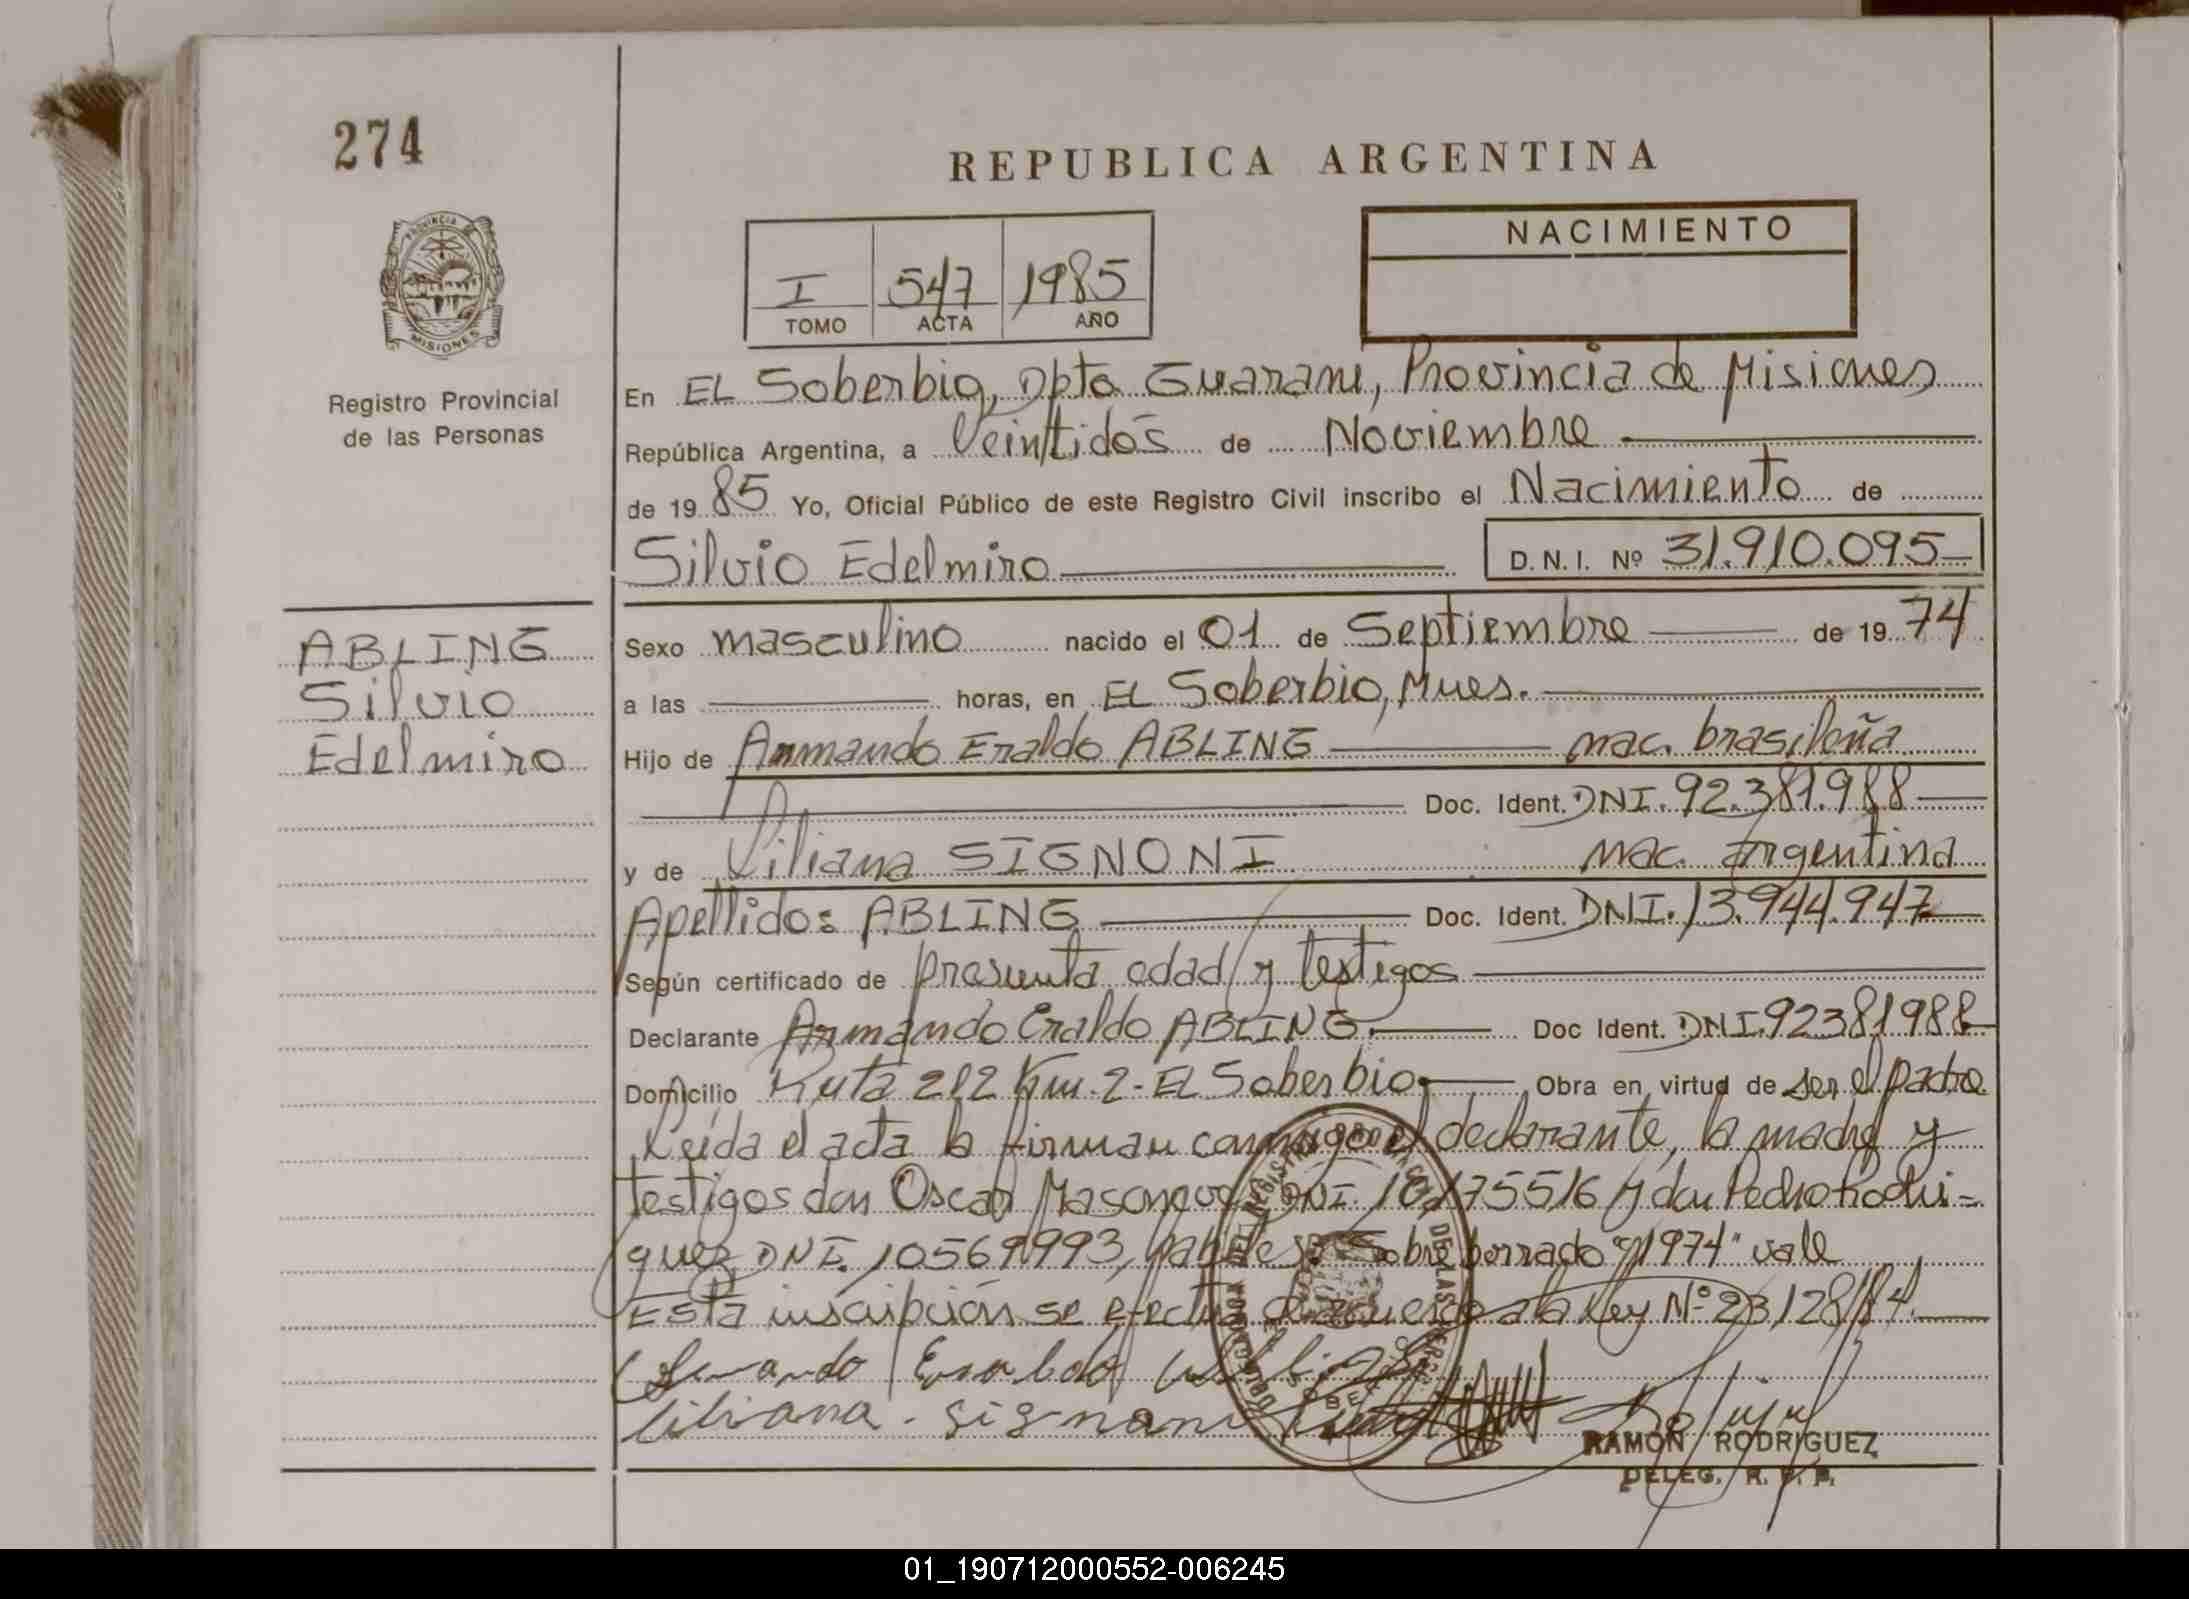 274
REPUBLICA ARGENTINA
PROVINCIA
MISIONES
Registro Provincial
de las Personas
I 547 1985
TOMO ACTA AÑO
NACIMIENTO
En EL Soberbio, Dpto Guarani, Provincia de Misiones
República Argentina, a Veintidós de Noviembre
de 1985 Yo, Oficial Público de este Registro Civil inscribo el Nacimiento de
Silvio Edelmiro D.N.I. Nº 31.910.095
ABLING
Silvio
Edelmiro
Sexo masculino nacido el 01 de Septiembre de 1974
a las horas, en EL Soberbio, Mnes.
Hijo de Armando Eraldo ABLING nac. brasileña
Doc. Ident. DNI. 92.381.988
y de Liliana SIGNONI nac. argentina
Apellido: ABLING Doc. Ident. DNI. 13.944.947
Según certificado de presunta edad y testigos
Declarante Armando Eraldo ABLING. Doc Ident. DNI.92381988
Domicilio Ruta 212 Km. 2- EL Soberbio. Obra en virtud de ser el padre
Leída el acta la firman conmigo el declarante, la madre y
testigos don Oscar DNI. 10175516 y don Pedro Rodri=
guez DNI. 10569993, Sobre borrado "1974" vale
Esta inscripción se efectua de acuerdo a la Ley Nº 23128/84.
Armando Eraldo Abling
liliana - signoni
RAMON RODRIGUEZ
DELEG. R. P. P.
01_190712000552-006245